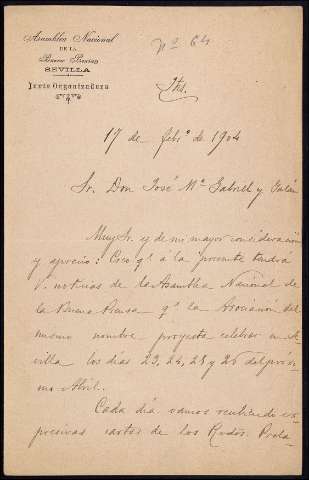 Asamblea Nacional
DE LA
Buena Prensa
SEVILLA
Junta Organizadora
Nº 64
17 de febº de 1904
Sr. Don José Mª Gabriel y Galán
Muy Sr. y de mi mayor consideración
y aprecio: Creo qe á la presente tendrá
V. noticias de la Asamblea Nacional de
la Buena Prensa qe la Asociación del
mismo nombre proyecta celebrar en Se-
villa los días 23, 24, 25 y 26 del próxi-
mo Abril.
Cada día vamos recibiendo ex-
presivas cartas de los Rvdos. Prela-